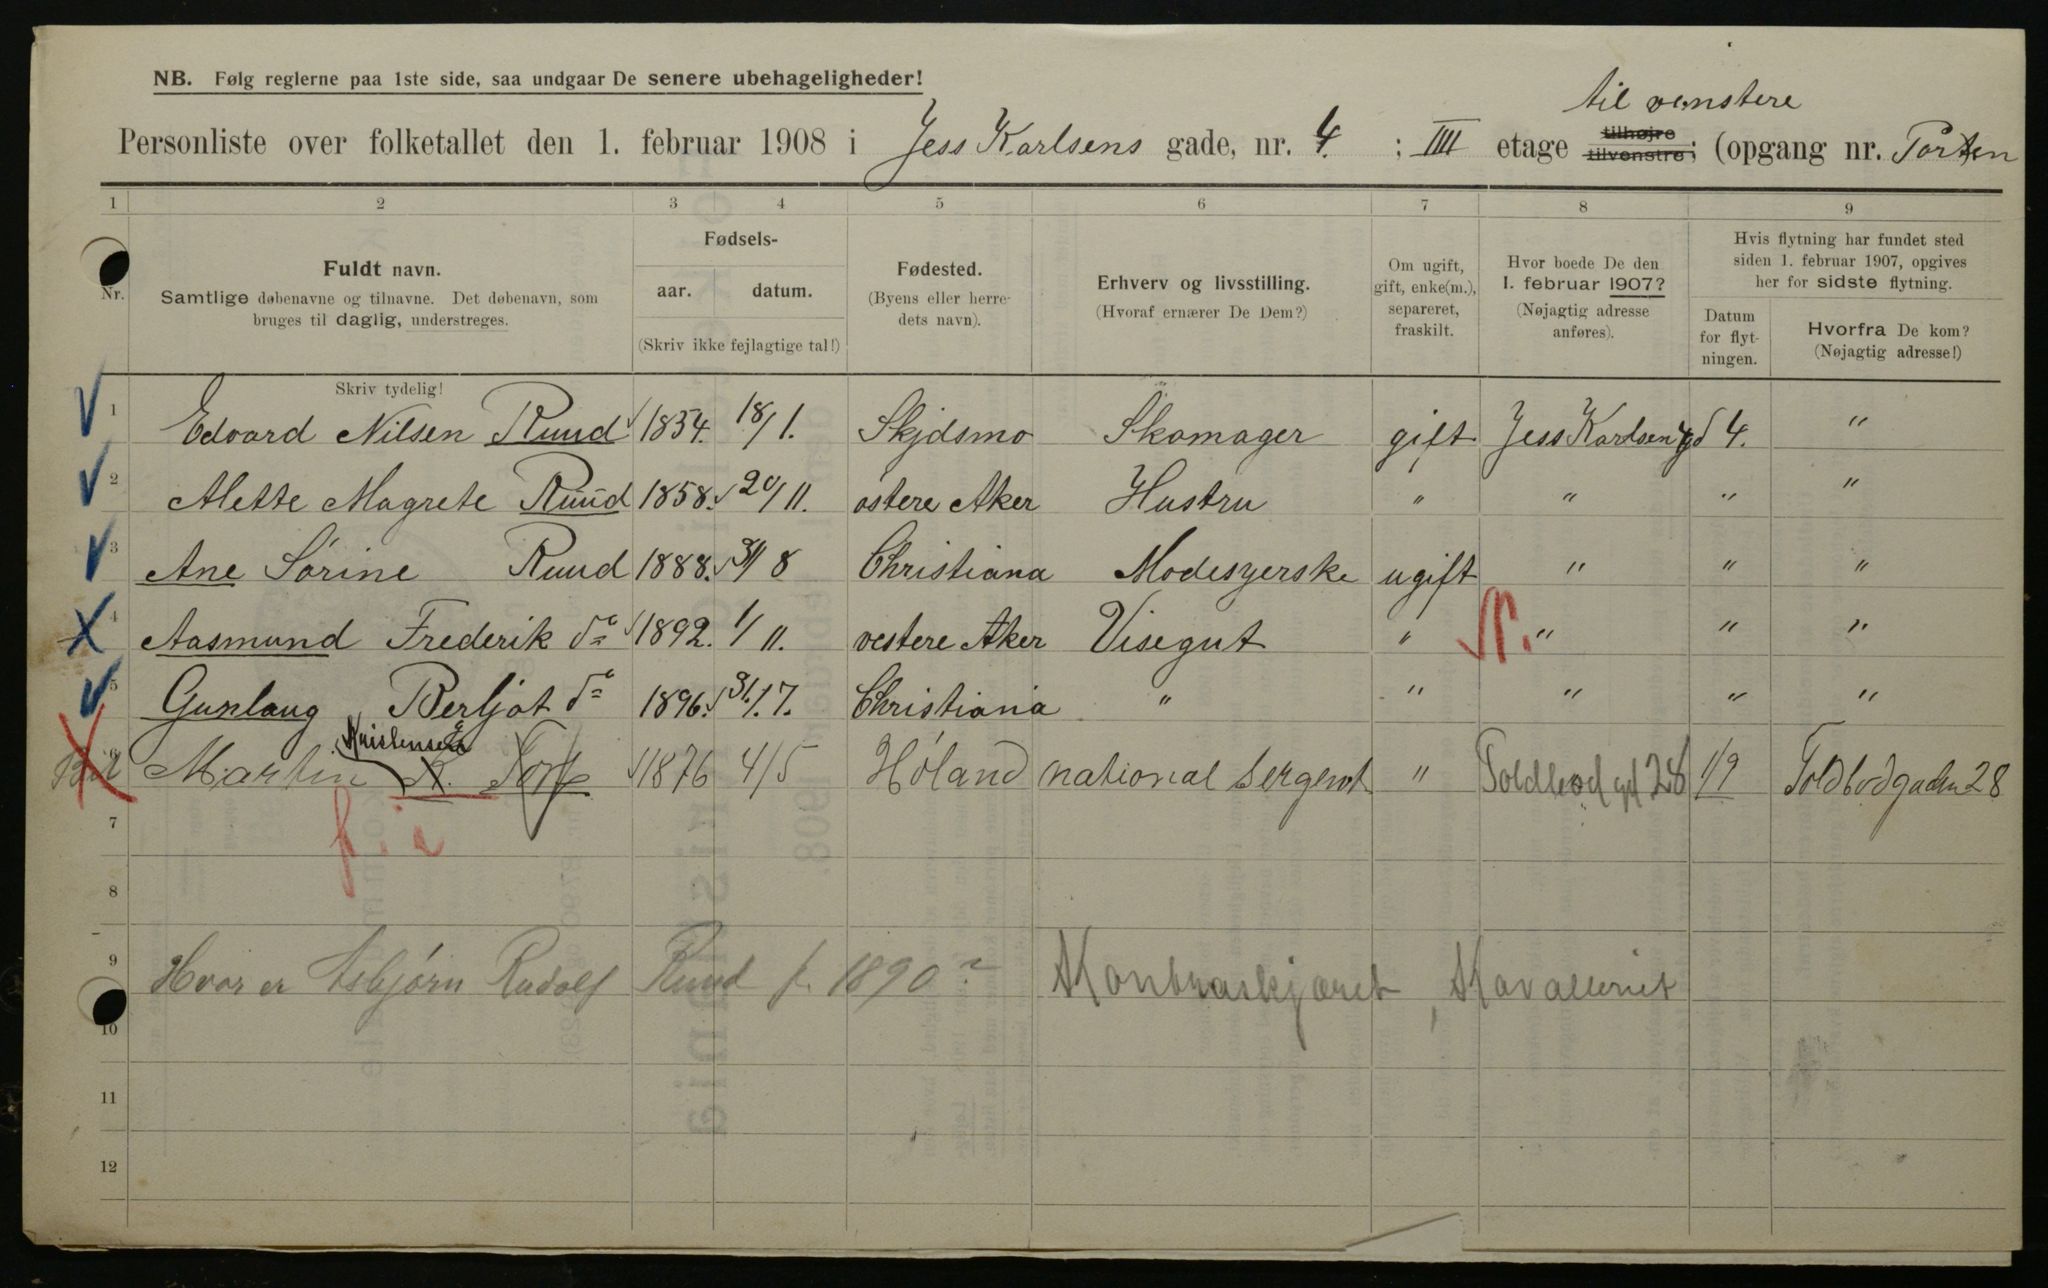 NB. Følg reglerne paa 1ste side, saa undgaar De senere ubehageligheder!
til venstere
Personliste over folketallet den 1. februar 1908 i Jess Karlsens gade, nr. 4. ; IIII etage tilhøjre tilvenstre; (opgang nr. Porten
1 2 3 4 5 6 7 8 9
Nr.
Fuldt navn.
Samtlige døbenavne og tilnavne. Det døbenavn, som
bruges til daglig, understreges.
Skriv tydelig!
Fødsels-
aar. datum.
(Skriv ikke fejlagtige tal!)
Fødested.
(Byens eller herre-
dets navn).
Erhverv og livsstilling.
(Hvoraf ernærer De Dem?)
Om ugift,
gift, enke(m.),
separeret,
fraskilt.
Hvor boede De den
1. februar 1907?
(Nøjagtig adresse
anføres).
Hvis flytning har fundet sted
siden 1. februar 1907, opgives
her for sidste flytning.
Datum
for flyt-
ningen.
Hvorfra De kom?
(Nøjagtig adresse!)
1 Edvard Nilsen Ruud 1854. 18/1. Skjdsmo Skomager gift Jess Karlsen gd 4. "
2 Mette Magrete Ruud 1858. 20/11. østere Aker Hustru " " " "
3 Ane Sørine Ruud 1888. 31/8 Christiana Modesyerske ugift " " "
4 Aasmund Frederik do 1892. 1/11. vestere Aker Visegut " " " "
5 Gunlaug Berljot do 1896. 31/7. Christiania " " " " "
Kristensen
6 Martin K. Torp 1876 4/5 Høland national sergent " Toldbod gd 28 1/9 Toldbodgaden 28
7
8
9 Hvor er Asbjørn Rudolf Ruud f. 1890? Kontraskjæret, Kavalleriet
10
11
12